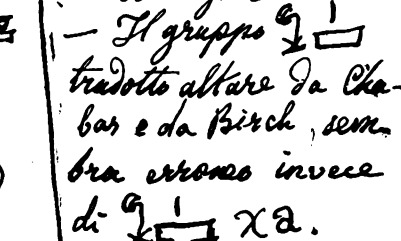 — Il gruppo
tradotto altare da Cha-
bas e da Birch, sem-
bra erroneo invece
di χa.